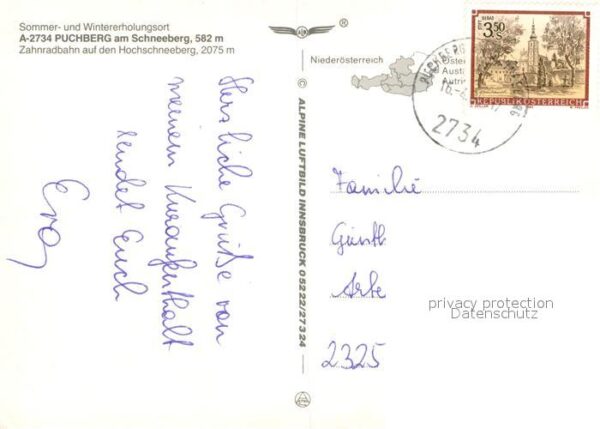 Sommer- und Wintererholungsort
A-2734 PUCHBERG am Schneeberg, 582 m
Zahnradbahn auf den Hochschneeberg, 2075 m
Herzliche Grüße von
meinem Kuraufenthalt
sendet Euch
Eva
© ALPINE LUFTBILD INNSBRUCK 05222/27324
®
Niederösterreich
3.50
REPUBLIK ÖSTERREICH
PUCHBERG
2734
Familie
2325
privacy protection
Datenschutz